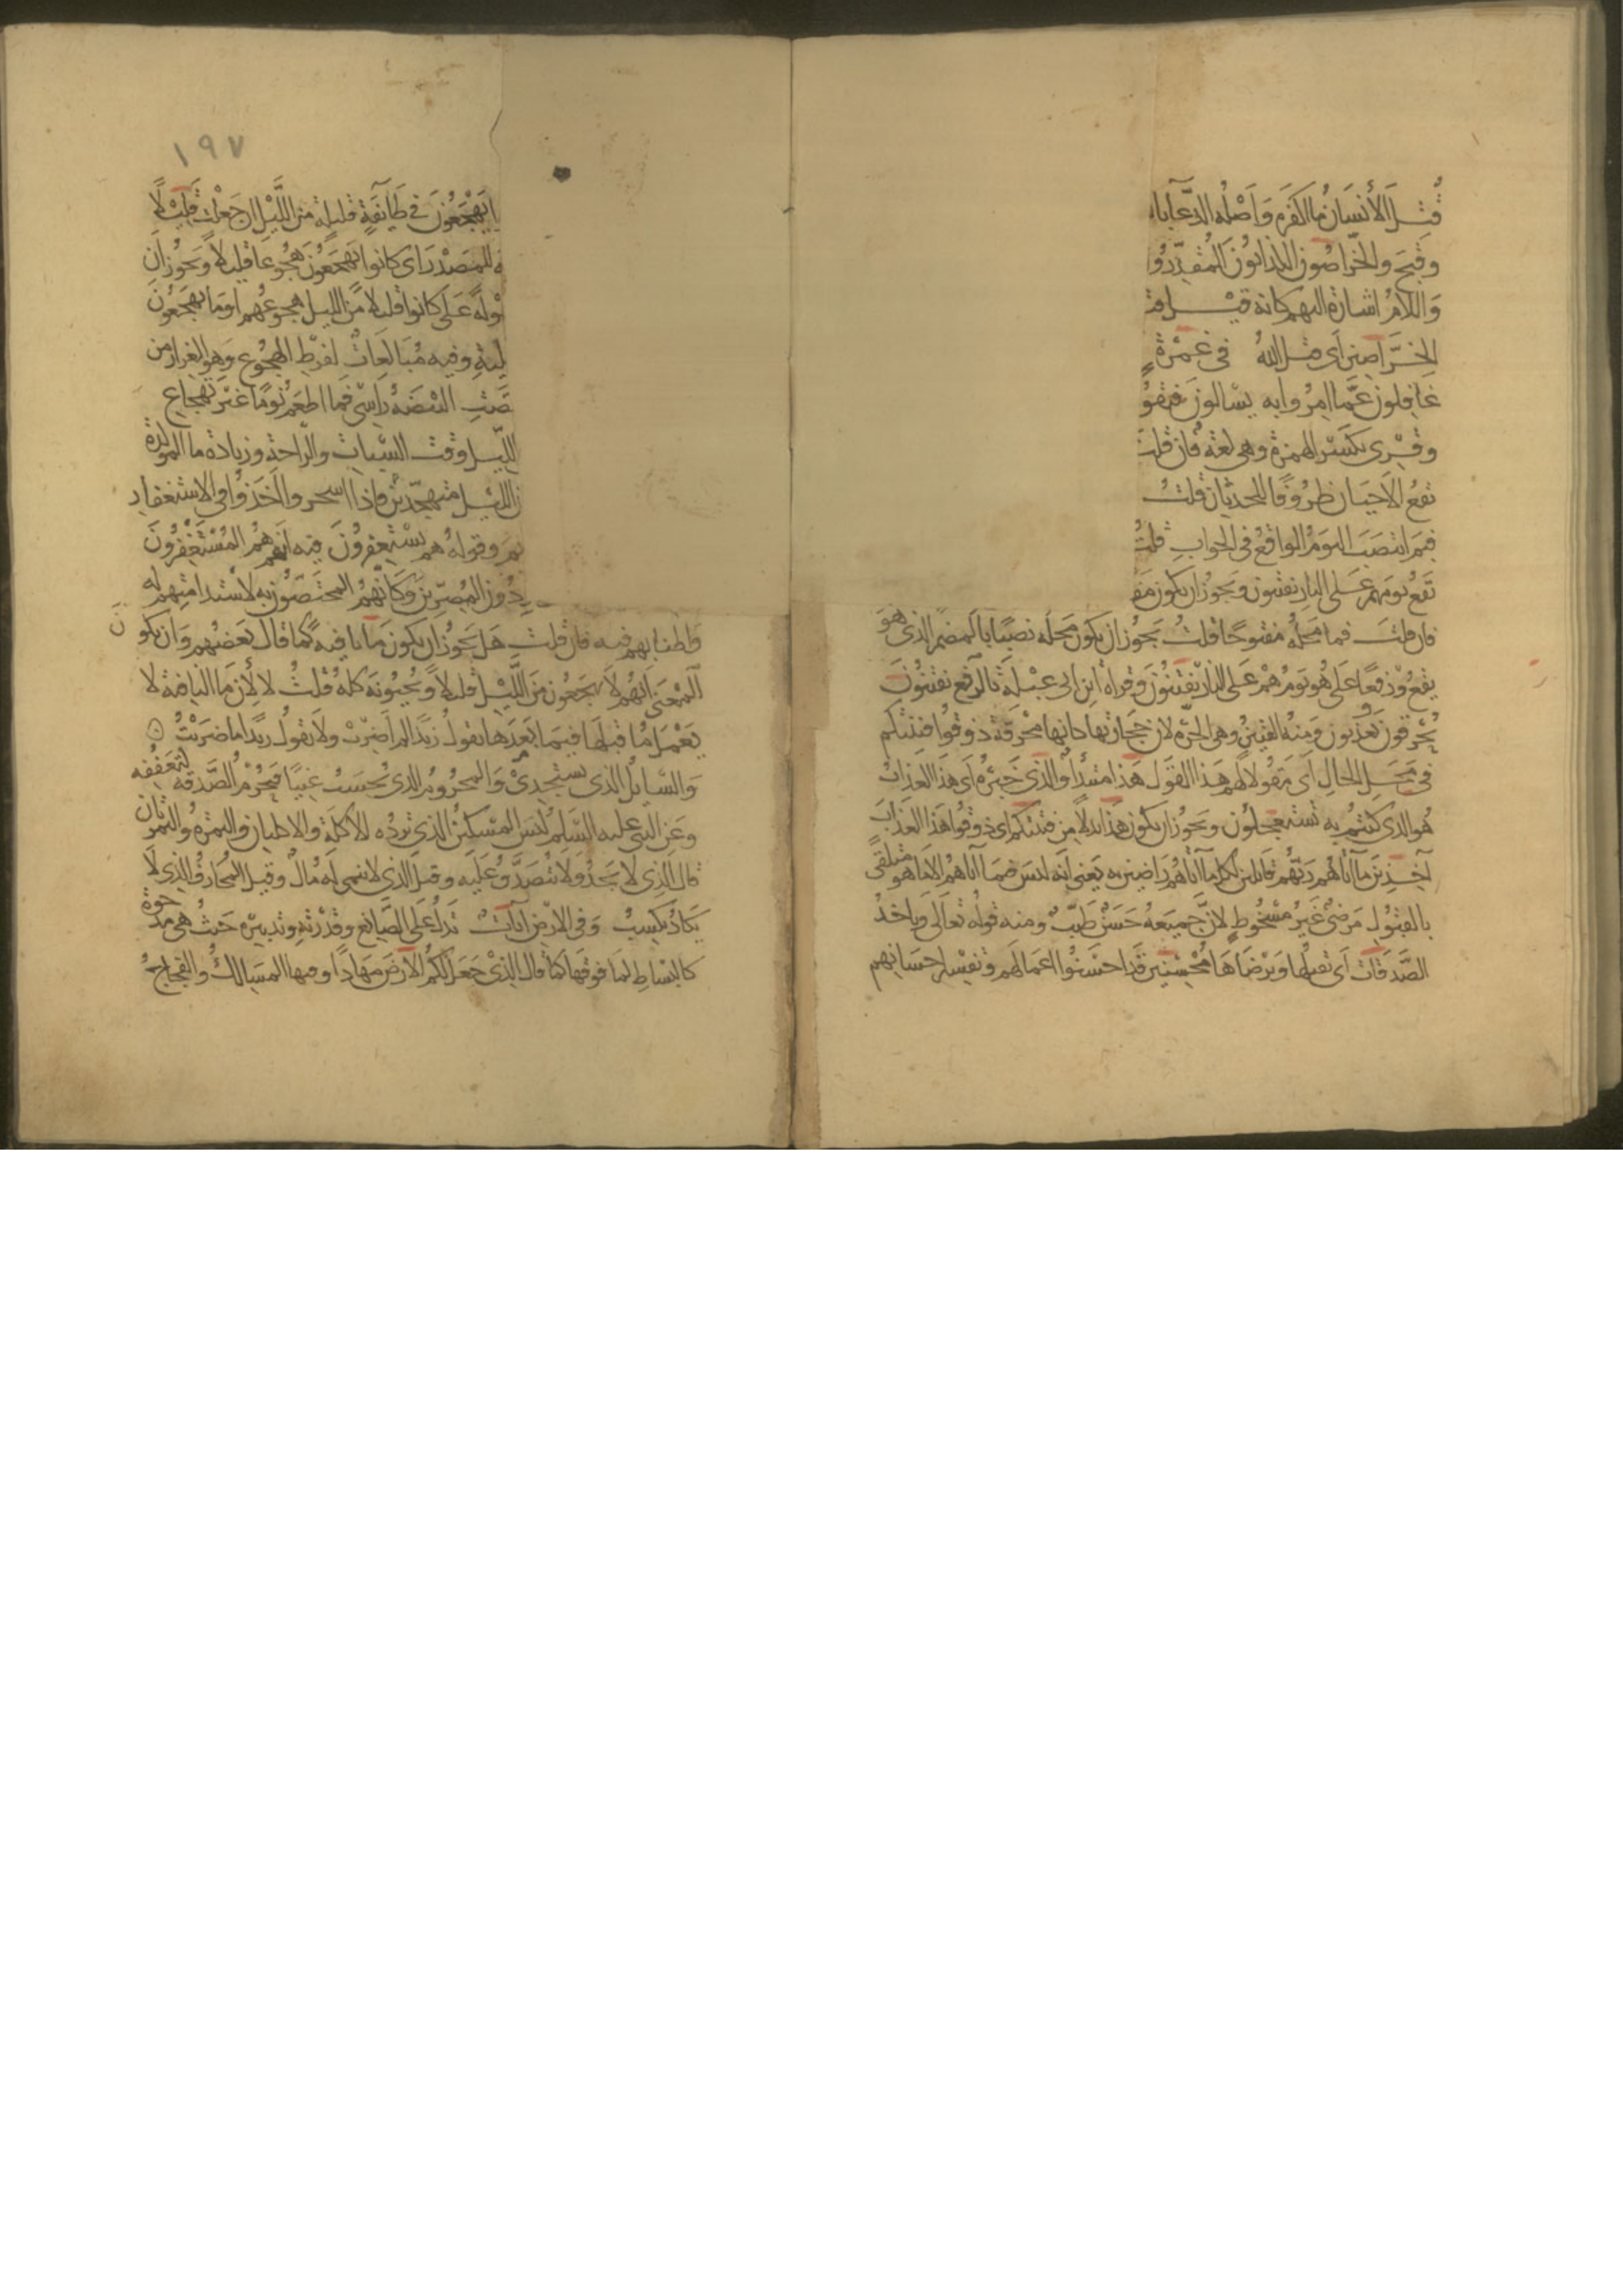 قُتِلَ الأنسَانُ مَا اكفَرَهُ وَاَصْلُه الدّعَآ با
وقُبِحَ والخرّاصُون الكذابُونَ المُقَدِّرُو
وَاللامُ اشارة اليهم كانه قيْل قتل
الخرَّاصين اَى قتل اللهُ فى غَمْرَةٍ
غَافِلُون عَمَّا امِرُوا به يسَالونَ فيقو
وقُرِى بكسْر الهمزة وهى لغة فان قلت
تقعُ الاَحيَان ظرُوفًا للحدثان قلتُ
فبمَ انتصَبَ اليَومُ الواقعُ فى الجوابِ قلتُ
يَقَعُ يَومَ هم عَلى النار يفتنون ويَجوُز ان يكون مَف
فان قلتَ فما مَحَلُّه مفتوحًا قلتُ يَجُوز ان يكون مَحَلّه نصبًا بالمضمر الذى هوَ
يقعُ ورفعًا عَلى هُو يَومُ هُمْ عَلى النار يُفْتنُونَ وقراهُ ابن ابى عبْلةَ بالرفع يفتنُونَ
يُحْرقون ويعذبون وَمنهُ الفتينُ وهى الحرّة لان حجَارتها كانها محْرقة ذوقُوا فتنتكم
فى مَحَلّ الحَالِ اَى مَقولا لهم هَذا القَول هَذا مبتدأ والذى خَبَرُه اَى هَذا العَذابُ
هُو الذى كنتُم به تَستعجلُون ويَجوُز ان يكون هَذا بَدلا من فتنتكم اى ذوقُوا هَذا العَذابَ
آخِذِينَ مَآ آتاهُم ربُّهُم قابلين لكل ما آتاهُم رَاضين به يَعنى انه ليسَ فيمَا آتاهُم الا ما هو متلقًى
بالقبُولِ مَرضىٌّ غَيرُ مسْخُوطٍ لانّ جميعَهُ حَسَنٌ طيّبٌ ومنه قولُه تَعالَى وَياخذُ
الصَّدَقَات اَى يَقبلُها وَيَرْضَاهَا مُحْسِنين قد احسَنُوا اعمَالَهُم وتفسِيرُ احسَانهم
١٩٧
يَهْجَعُونَ فى طَايفَةٍ قليلة من اللَّيْل ان جَعلت قَليْلًا
للمَصْدر اى كانوا يَهجَعُونَ هُجُوعًا قليلاً ويَجُوز ان
عَلى كانوا قليلا من الليل هُجُوعُهُم او مَا يهجَعُونَ
وفيه مُبَالغَاتٌ لفرْط الهجُوع وَهو الغِرَار من
البيْضَة رَاسِى فمَا اطعَمُ نومًا غيْرَ تَهْجَاع
الليْل وقت السّبات والرّاحَة وزيَادة ما المؤكدة
الليْل متهجّدين فاذا اسحَروا اَخَذوُا فى الاستغفار
وقوله هم يَسْتغفرُونَ فيه انَّهم هُمُ المُسْتَغْفِرُونَ
دُون المُصِرّين وَكَانّهُمُ المختَصُّون به لاسْتدامَتِهم له
وَاطنابهم فيه فان قلت هَل يَجُوزُ ان يكونَ مَا نافيَةً كمَا قالَ بَعْضُهم وان يكونَ
المعْنَى انهُم لا يَهجَعُون من اللَّيْل قليلاً ويُحيُونَه كلهُ قلتُ لا لأن مَا النافية لا
يَعْملُ مَا بَعدَهَا فيمَا قبلَها تقولُ زيدًا لم اضربْ ولا تقولُ زيدًا ما ضرَبْتُ
وَالسَّايلُ الذى يَستجدِى وَالمحرُومُ الذى يُحسَبُ غَنيًّا فيُحْرَمُ الصَّدَقة لتعَفُّفِه
وعَن النبى عليه السَّلم ليسَ المسْكينُ الذى ترُدّه الاكلة والاكلتان والتمرةُ والتمرتان
قال الذى لا يَجدُ ولا يُتصَدَّقُ عَليه وقيل الذى لا ينمى له مَالٌ وقيل المُحَارَفُ الذى لا
يَكادُ يَكسِبُ وَفى الارض آيَاتٌ تدلُّ عَلى الصَّانع وقُدْرته وتدبيرِه حيثُ هى مَدحُوّة
كالبسَاطِ لمَا فوقَهَا كما قال الذى جَعَل لكمُ الارضَ مهَادًا وفيها المسَالكُ والفجَاجُ